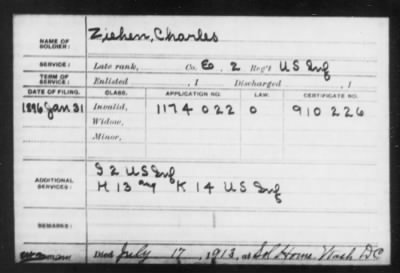 NAME OF SOLDIER: Ziehen, Charles
SERVICE: Late rank, Co. E, 2 Reg't US Inf
TERM OF SERVICE: Enlisted , 1 Discharged , 1
DATE OF FILING. CLASS. APPLICATION NO. LAW. CERTIFICATE NO.
1896 Jan 31 Invalid, 1174 022 0 910 226
Widow,
Minor,
ADDITIONAL SERVICES: I 2 US Inf
H 13 and K 14 US Inf
REMARKS:
Died July 17, 1913, at Sol Home Wash DC